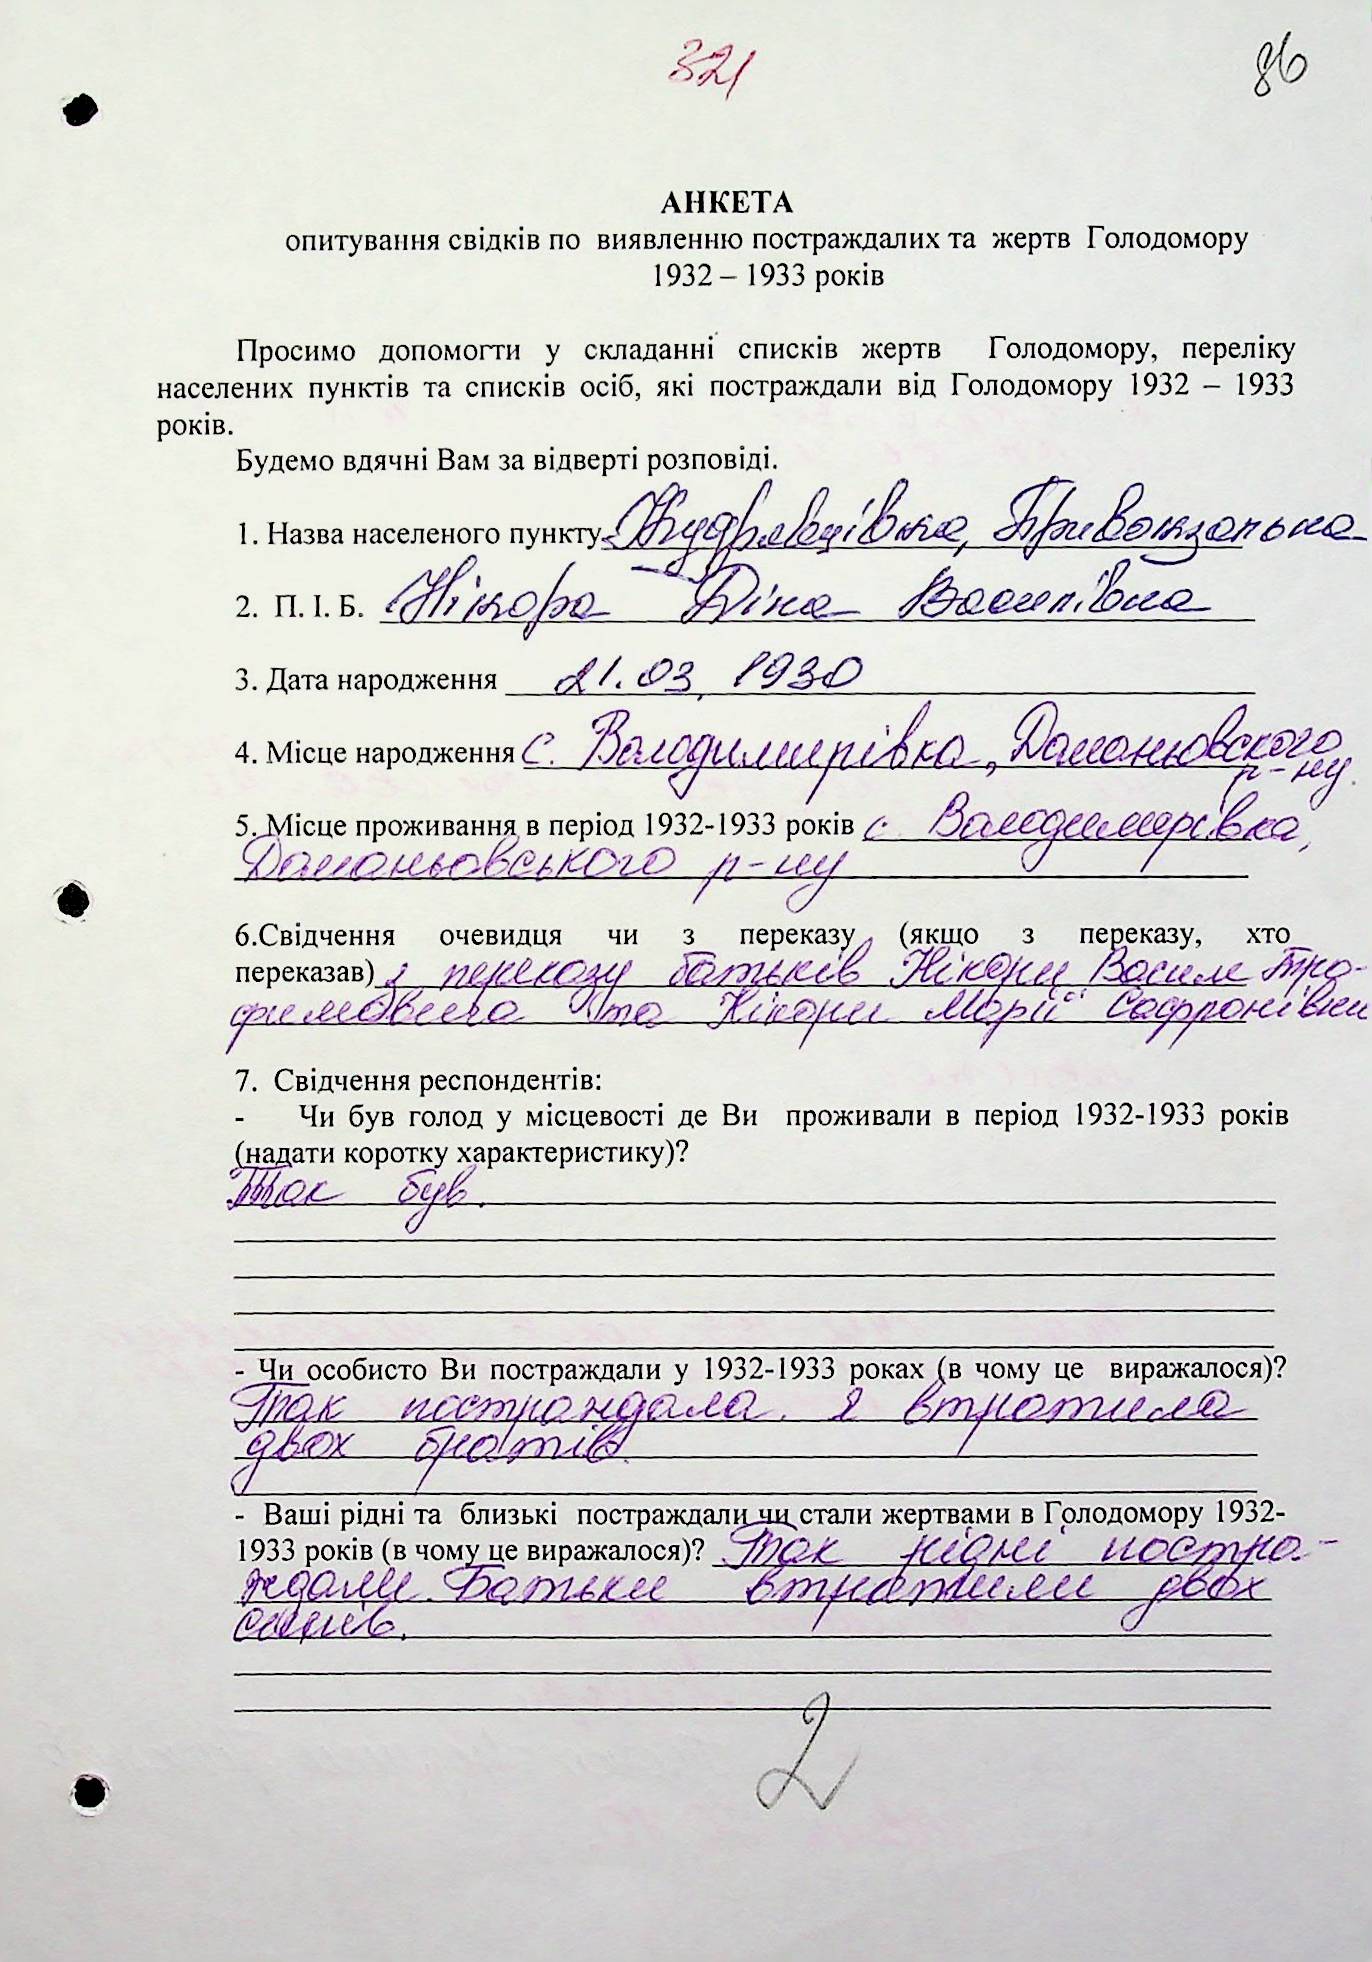 321
86
АНКЕТА
опитування свідків по виявленню постраждалих та жертв Голодомору
1932 – 1933 років
Просимо допомогти у складанні списків жертв Голодомору, переліку
населених пунктів та списків осіб, які постраждали від Голодомору 1932 – 1933
років.
Будемо вдячні Вам за відверті розповіді.
1. Назва населеного пункту Кудрявцівка, Привокзальна
2. П. І. Б. Нікора Діна Василівна
3. Дата народження 21.03.1930
4. Місце народження с. Володимирівка, Доманьовского
р-ну.
5. Місце проживання в період 1932-1933 років с. Володимирівка,
Доманьовського р-ну
6.Свідчення очевидця чи з переказу (якщо з переказу, хто
переказав) з переказу батьків Нікори Васил Тро-
фимовича та Нікори Марії Софронівни
7. Свідчення респондентів:
- Чи був голод у місцевості де Ви проживали в період 1932-1933 років
(надати коротку характеристику)?
Так був.
- Чи особисто Ви постраждали у 1932-1933 роках (в чому це виражалося)?
Так постраждала. Я втратила
двох братів.
- Ваші рідні та близькі постраждали чи стали жертвами в Голодомору 1932-
1933 років (в чому це виражалося)? Так рідні постра-
ждали. Батьки втратили двох
синів.
2